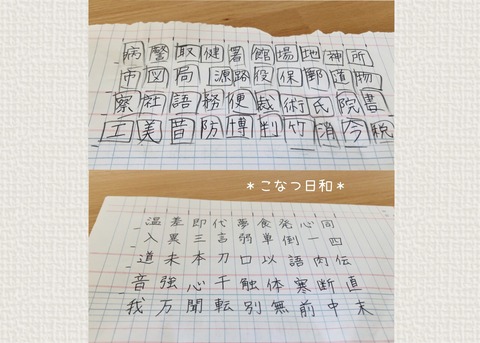 病 警 取 健 署 館 場 地 神 所
市 図 局 源 路 役 保 郵 道 物
察 社 語 務 便 裁 術 氏 院 書
工 美 昔 防 博 判 竹 消 今 税
＊こなつ日和＊
温 差 即 代 夢 食 発 心 同
入 異 三 言 弱 単 倒 一 四
道 未 本 刀 口 以 語 肉 伝
音 強 心 千 触 体 寒 断 直
我 方 聞 転 別 無 前 中 末